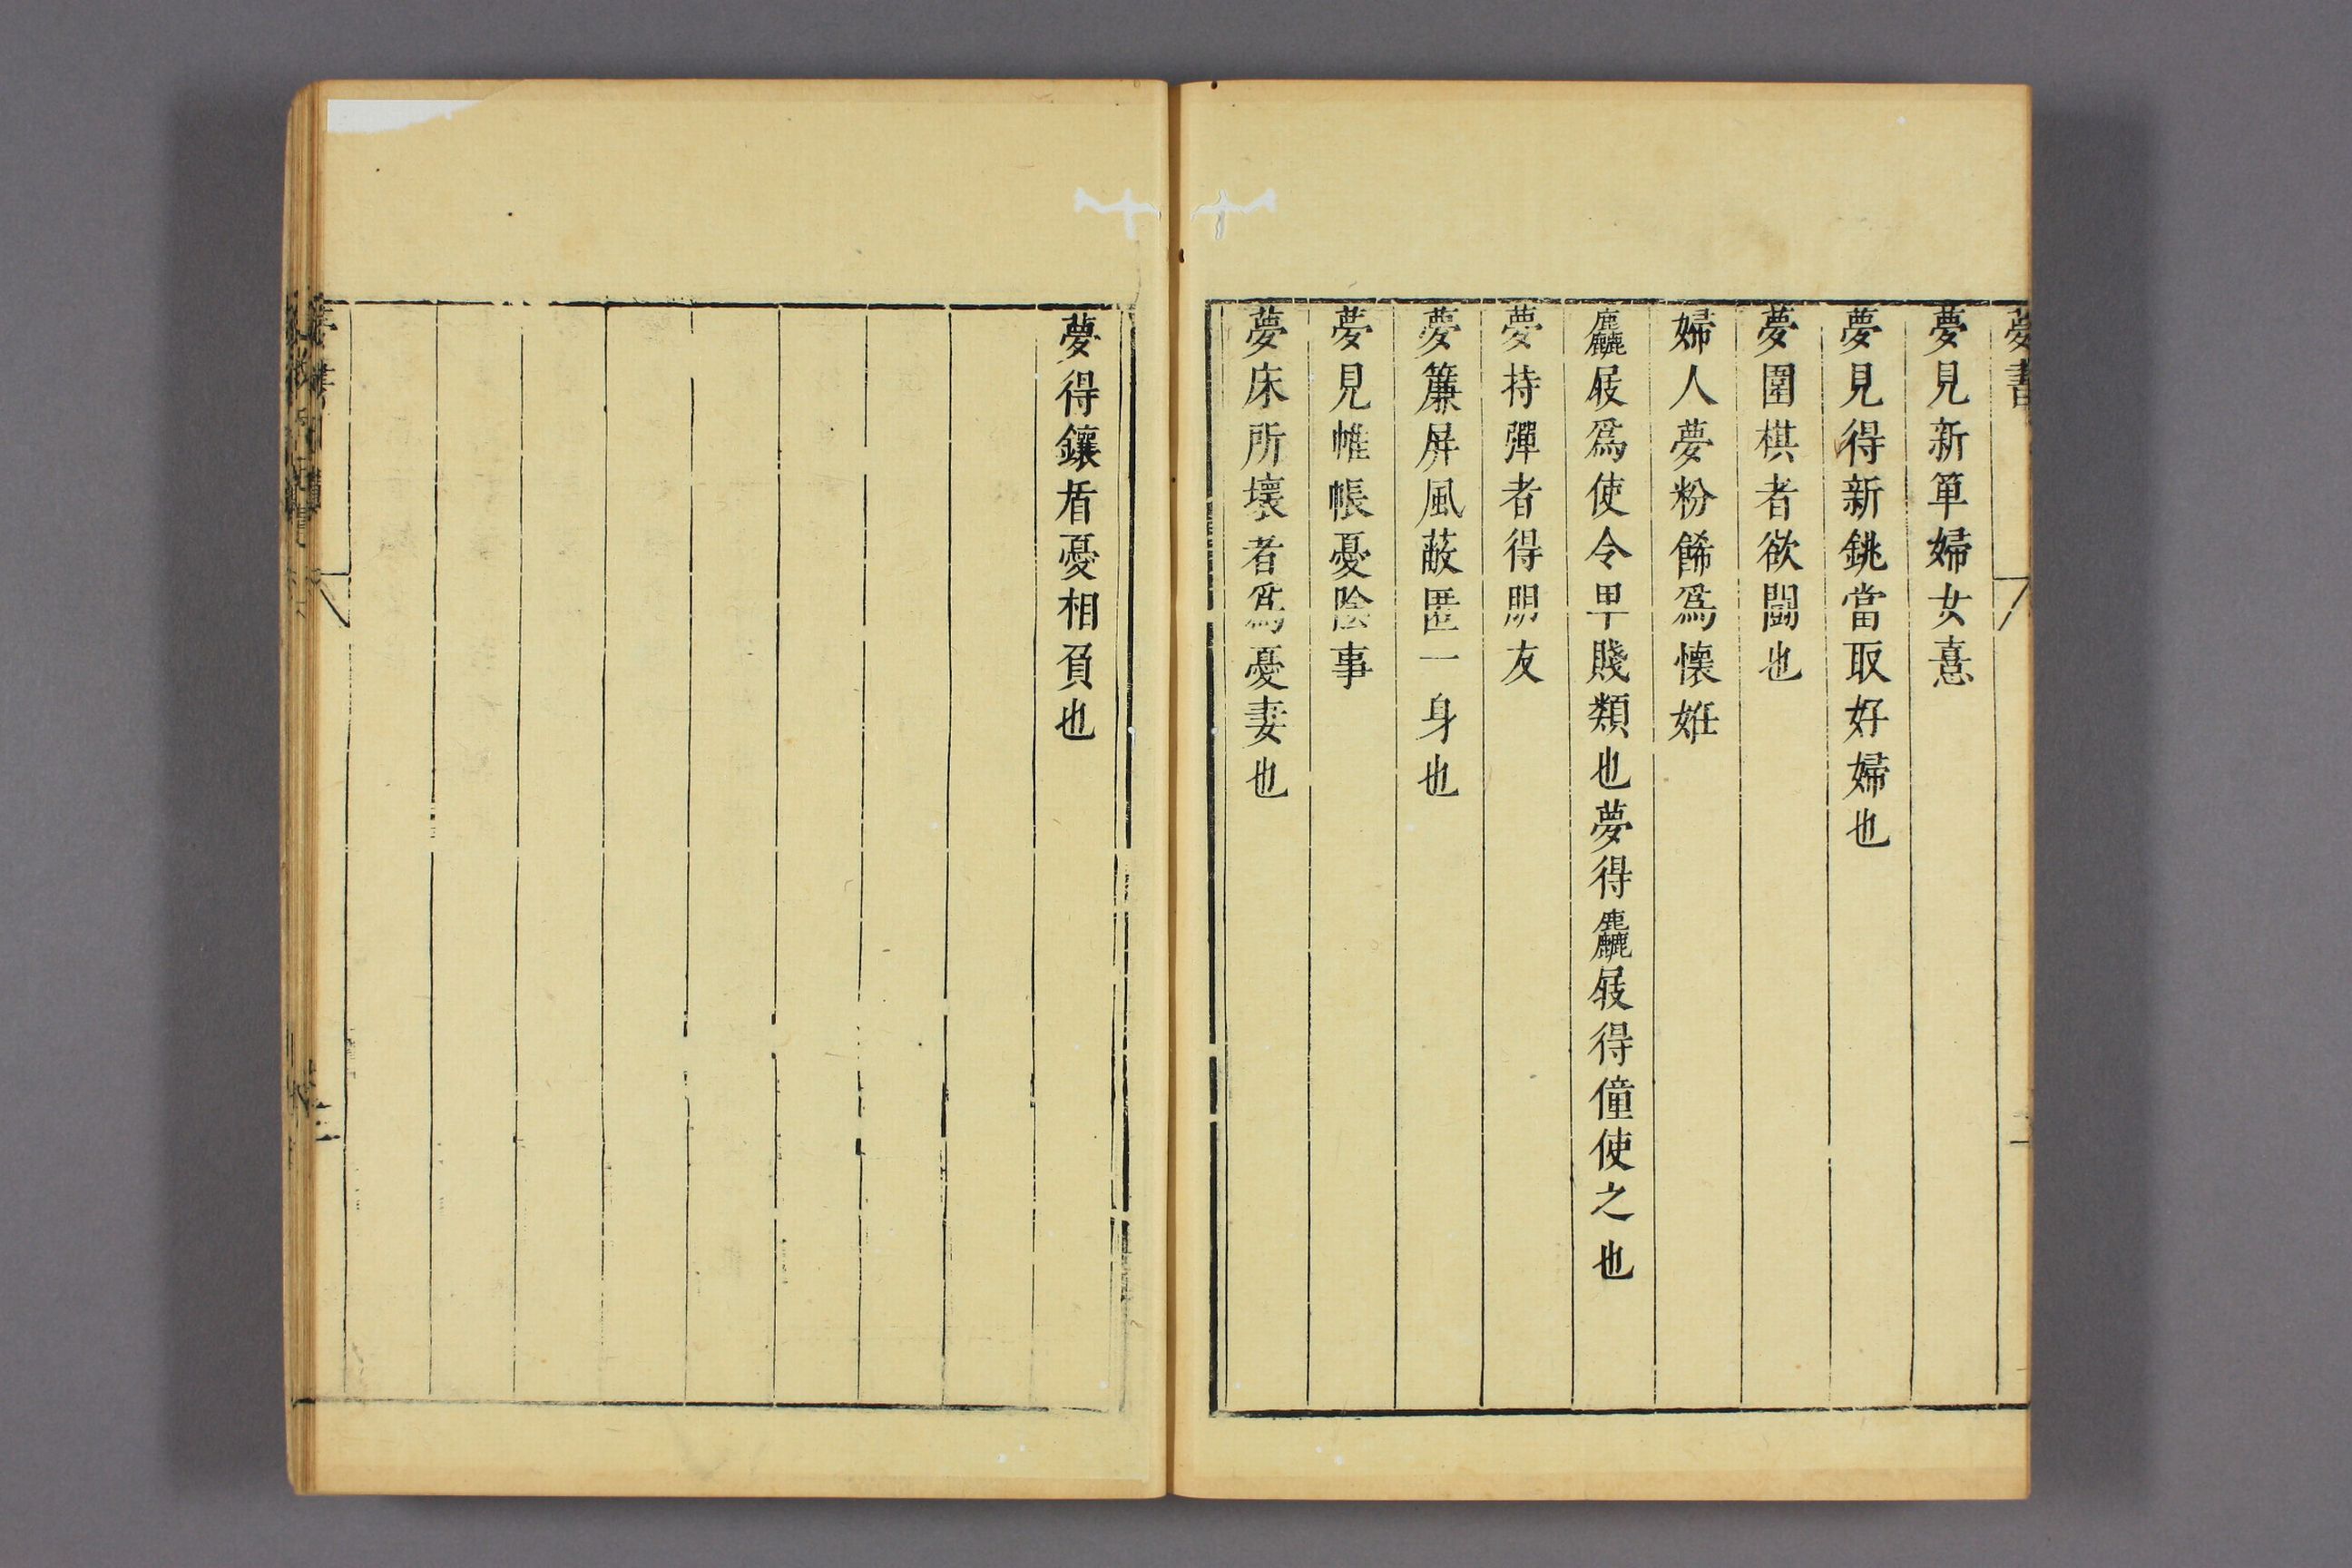 夢書
夢見新單婦女憙
夢見得新銚當取好婦也
夢圍棋者欲鬪也
婦人夢粉餙爲懷妊
麤屐爲使令早賤類也夢得麤屐得僮使之也
夢持彈者得朋友
夢簾屏風蔽匿一身也
夢見帷帳憂陰事
夢床所壞者爲憂妻也
夢得鑲盾憂相負也